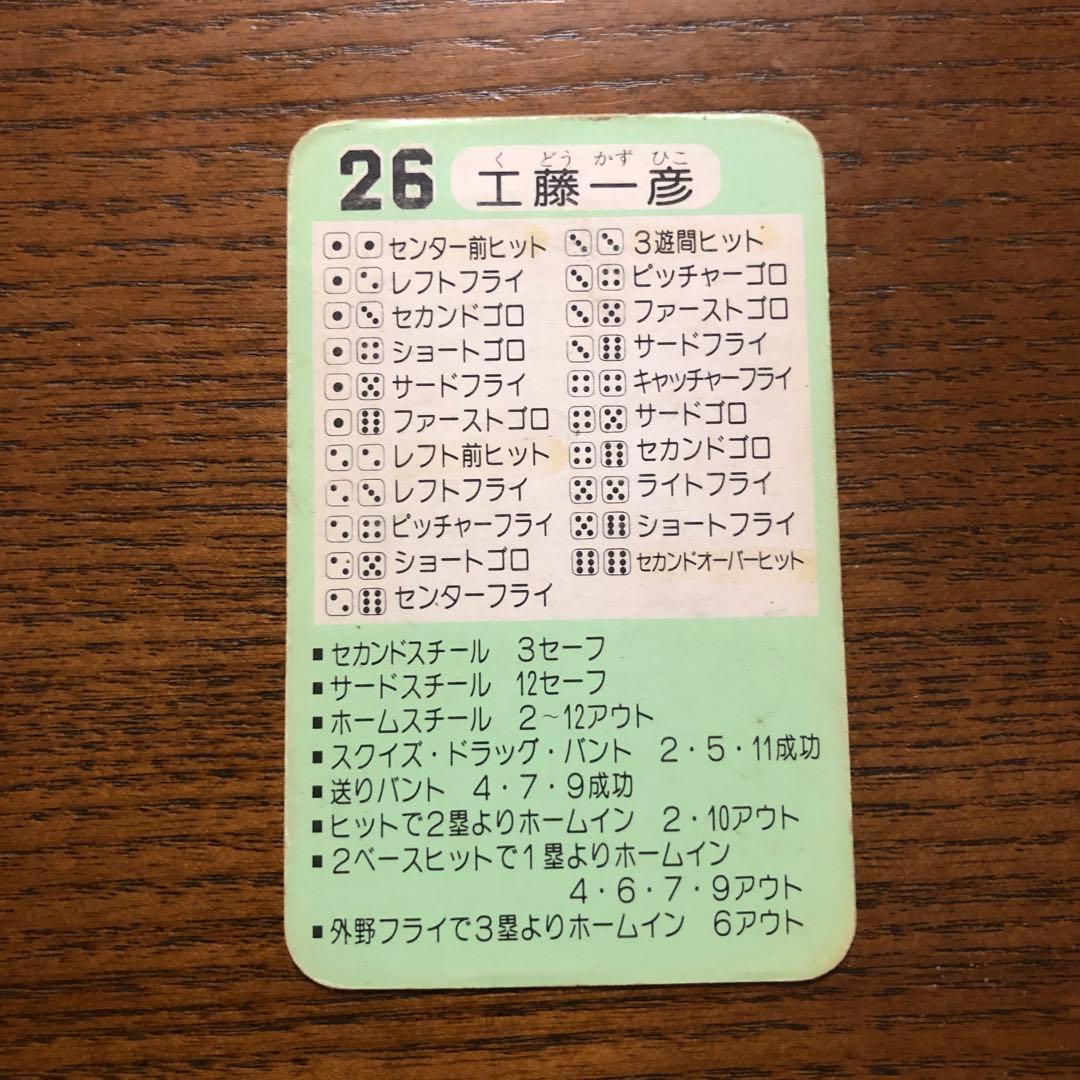 26 工藤一彦
く どう かず ひこ
センター前ヒット
レフトフライ
セカンドゴロ
ショートゴロ
サードフライ
ファーストゴロ
レフト前ヒット
レフトフライ
ピッチャーフライ
ショートゴロ
センターフライ
3遊間ヒット
ピッチャーゴロ
ファーストゴロ
サードフライ
キャッチャーフライ
サードゴロ
セカンドゴロ
ライトフライ
ショートフライ
セカンドオーバーヒット
■セカンドスチール 3セーフ
■サードスチール 12セーフ
■ホームスチール 2~12アウト
■スクイズ・ドラッグ・バント 2・5・11成功
■送りバント 4・7・9成功
■ヒットで2塁よりホームイン 2・10アウト
■2ベースヒットで1塁よりホームイン
4・6・7・9アウト
■外野フライで3塁よりホームイン 6アウト